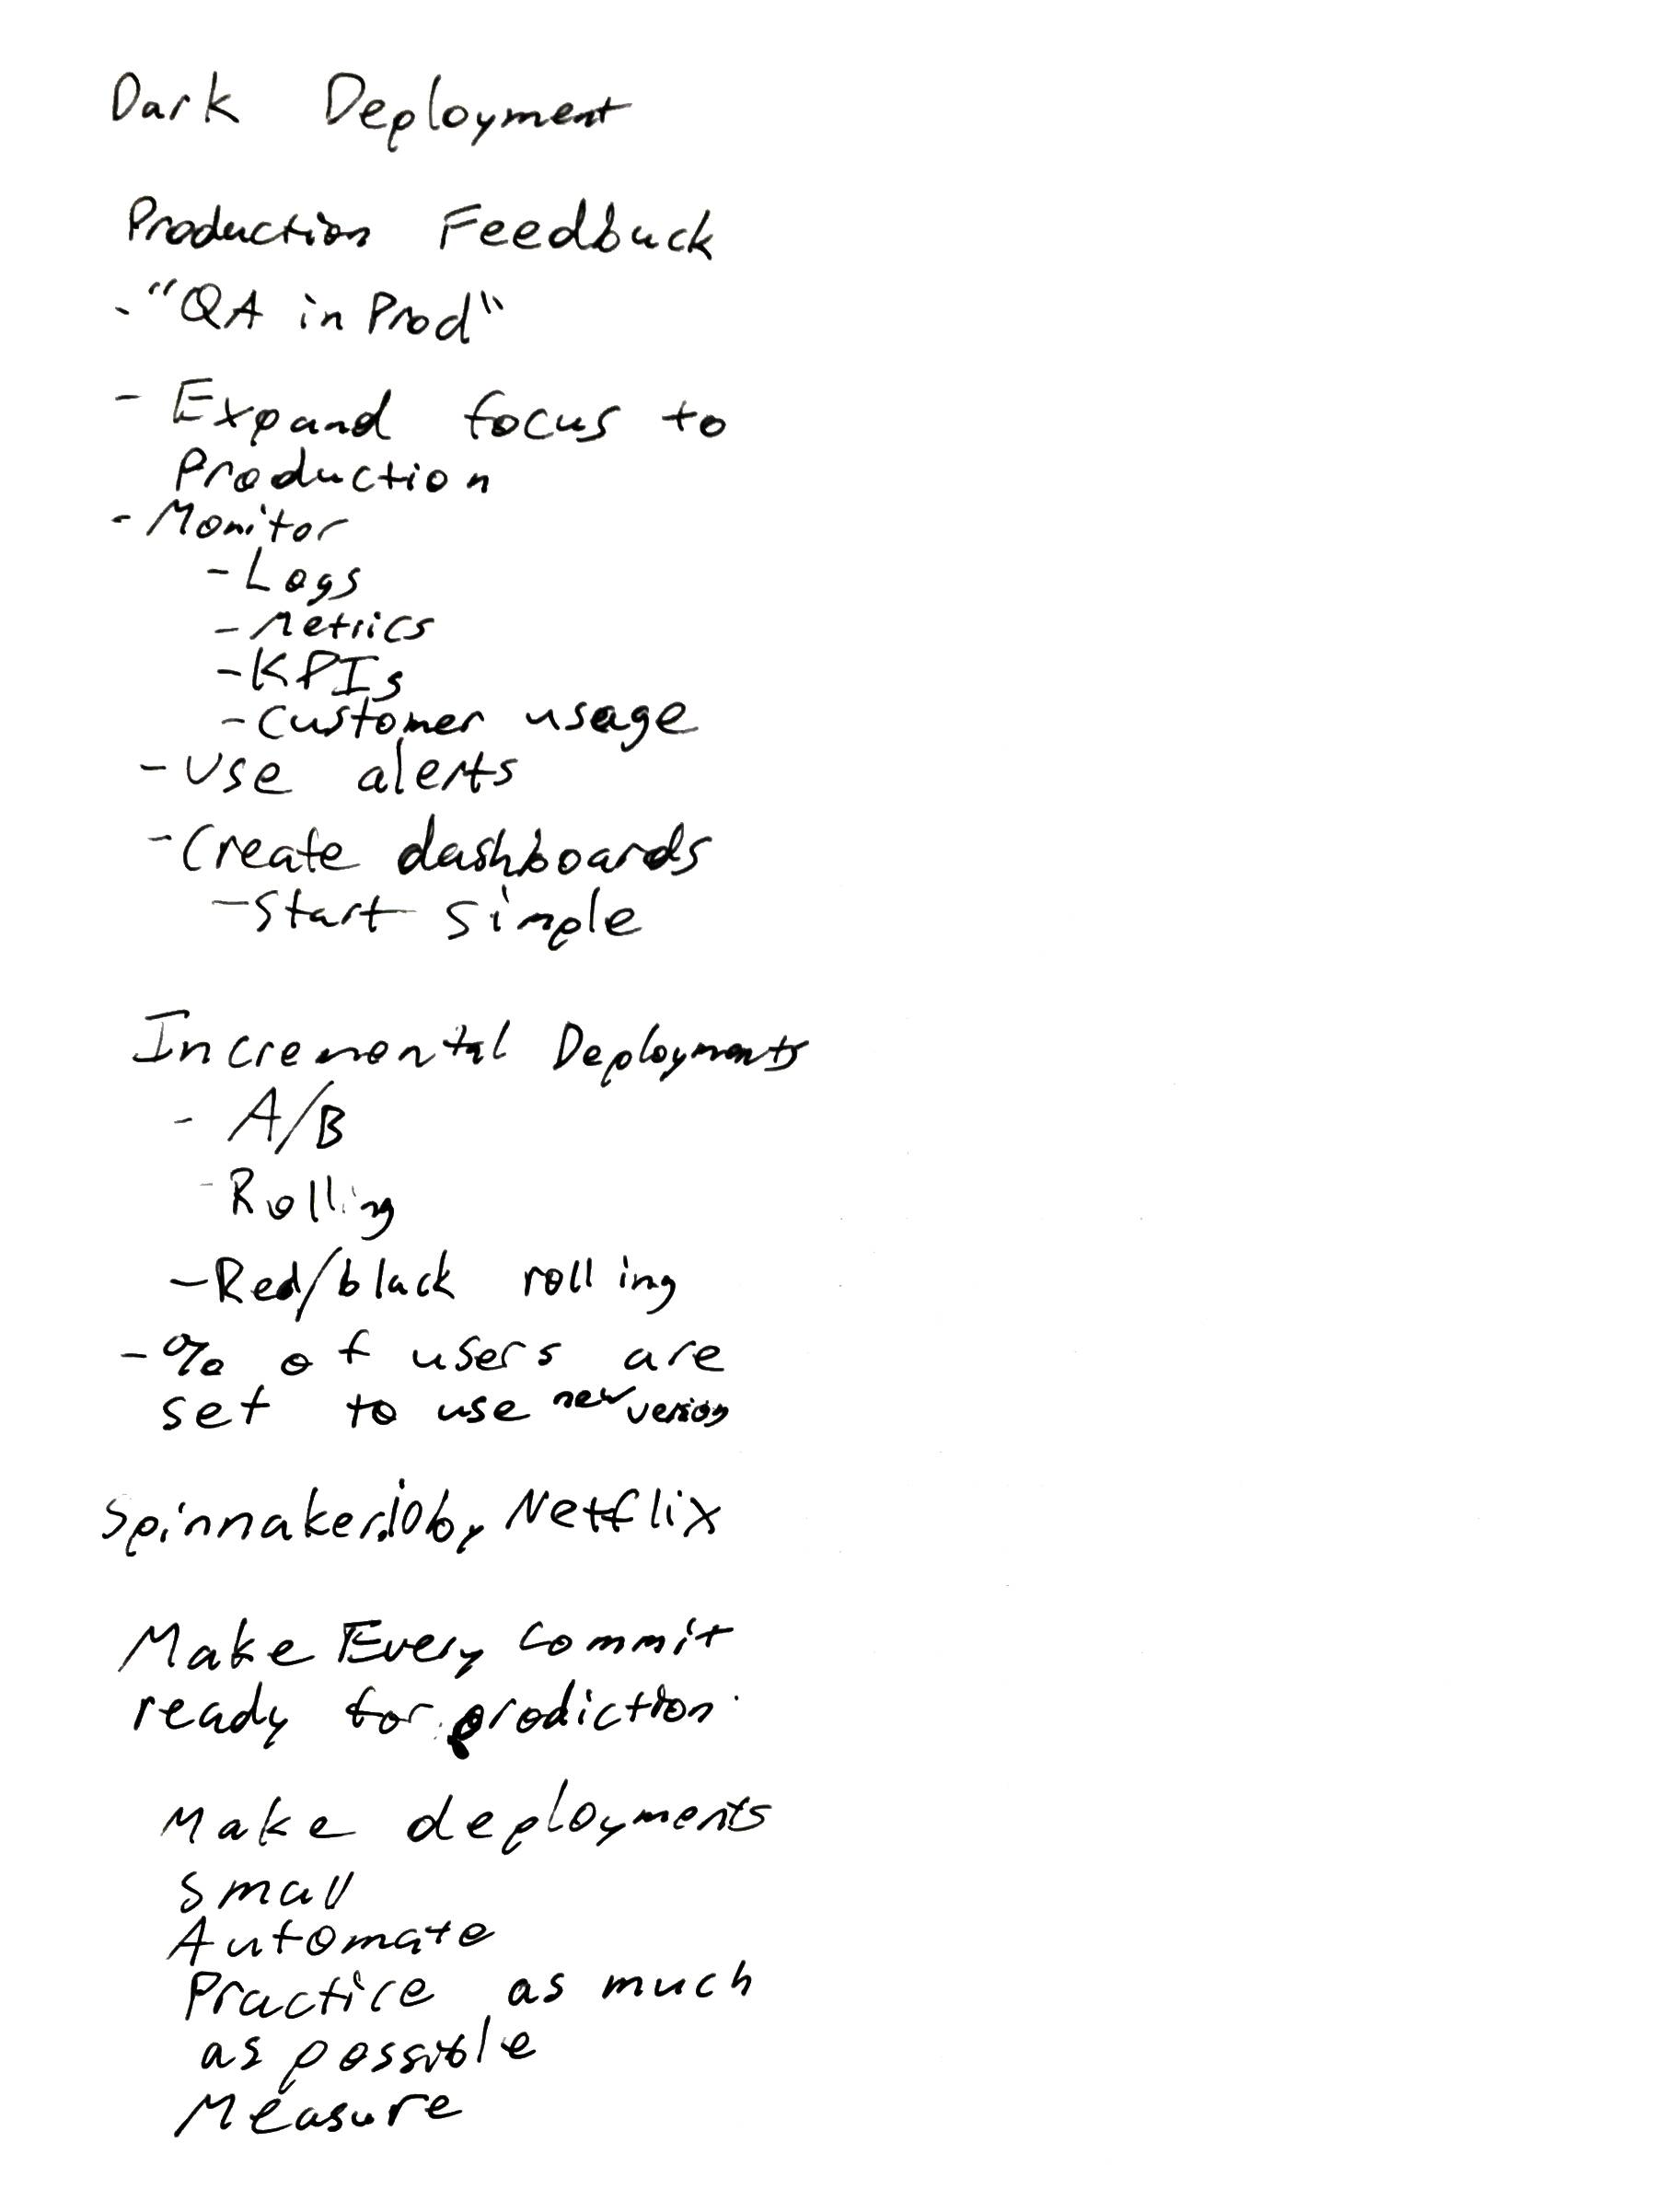 Dark Deployment
Production Feedback
- "QA in Prod"
- Expand focus to
Production
- Monitor
- Logs
- Metrics
- KPIs
- Customer usage
- Use alerts
- Create dashboards
- Start simple
Incremental Deployments
- A/B
- Rolling
- Red/black rolling
- % of users are
set to use new version
Spinnaker.io by Netflix
Make Every commit
ready for prodiction.
Make deployments
small
Automate
Practice as much
as possible
Measure